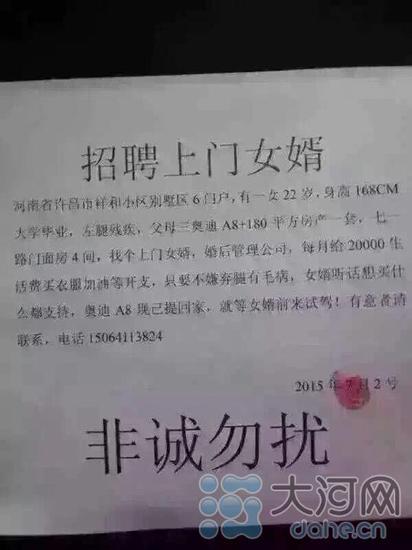 招聘上门女婿
河南省许昌市祥和小区别墅区6门户，有一女22岁，身高168CM
大学毕业，左腿残疾，父母三奥迪A8+180平方房产一套，七一
路门面房4间，找个上门女婿，婚后管理公司，每月给20000生
活费买衣服加油等开支，只要不嫌弃腿有毛病，女婿听话想买什
么都支持，奥迪A8现已提回家，就等女婿前来试驾！有意者请
联系，电话15064113824
2015年7月2号
非诚勿扰
大河网
dahe.cn